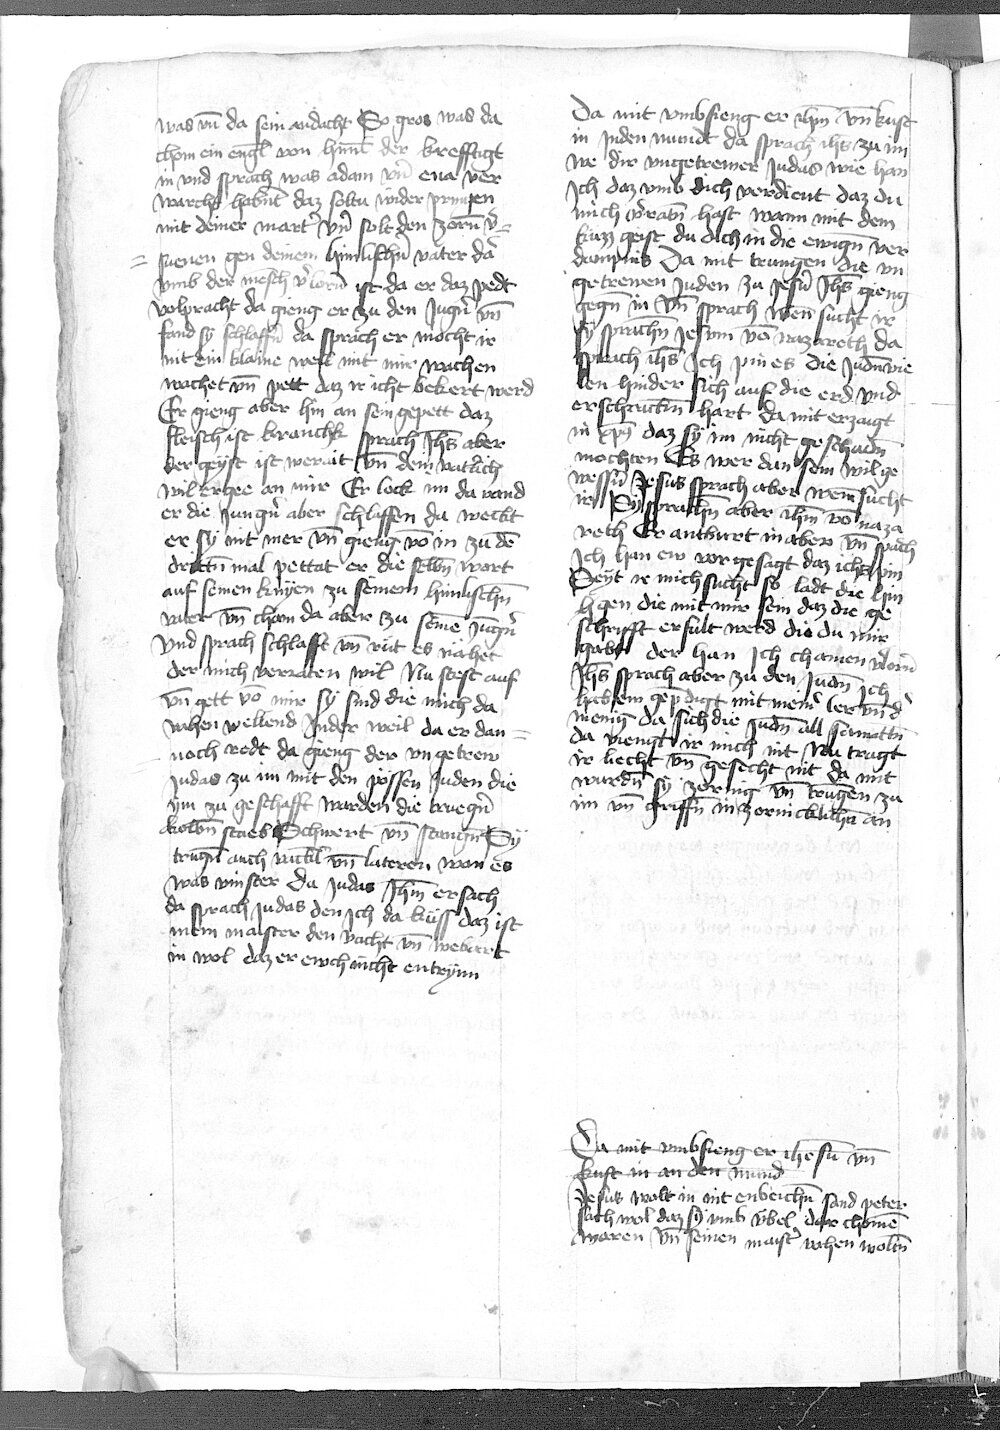 was vn̄ da sein andacht So gros was da
chom ein engl von himl der krefftigt
in vnd sprach was adam vn̄ eua ver
warcht habn̄t daz soltu wider pringen
mit deiner marter vn̄ solt den zorn v̓
suenen gen deinem himlischn̄ vater da
vmb der mesch v̓lorn̄ ist da er daz pedt
volpracht da gieng er zu den Jugn̄ vn̄
fand sy schlaffn̄ da sprach er mocht ir
nit ein klaine weil mit mir wachen
wachet vn̄ pett daz ir icht bekert werd
Er gieng aber hin an sein gepett daz
fleisch ist kranchk sprach Jhs aber
der geyst ist werait vn̄ dem vatr̄lich
wil ergee an mir Er lock im da vand
er die Jungn̄ aber schlaffen da weckt
er sy nit mer vn̄ gieng vō in zu dē
drittn̄ mal pettat er die selbn̄ wort
auf seinen knyen zu seinem himlischn̄
vater vn̄ cham da aber zu seine Jūgn̄
vnd sprach schlafft vn̄ rut es nahet
der mich verraten wil Nu stest auf
vn̄ gett vō mir sy sind die mich da
vahen wellend Inder weil da er dan
noch redt da gieng der vngetrew
Judas zu im mit den possen Juden die
ym zu geschafft warden die truegn̄
kolbn̄ staeb Schwert vn̄ stangn̄ Sy
trugn̄ auch vackl vn̄ lateren wan es
was vinster Da Judas Jhm̄ ersach
da sprach Judas den ich da küss daz ist
mein maister den vacht vn̄ webart
in wol daz er ewch nicht entrynn
Da mit vmbfieng er ihm̄ vn̄ kust
in Inden mundt da sprach ihs zu im
we dir vngetrewer Judas wie han
Ich daz vmb dich verdient daz du
mich v̓ratn̄ hast wann mit dem
kuzz geist du dich in die ewign̄ ver
dampnis Da mit trungen die vn
getrewen Juden zu Jesu Jhs gieng
gegn̄ in vn̄ sprach wen sucht ir
sy sprachn̄ Jesum vō nazareth da
sprach ihs Ich pin es die Judn̄ vie
len hinder sich auf die erd vnd
erschrackn̄ hart da mit erzaigt
in xp̄s daz sy im nicht geschadn̄
mochten Es wer dan sein wil ge
wessn̄ Jesus sprach aber wem sucht
ir Sy sprachn̄ aber ihm̄ vō naza
reth Er antburt in aber vn̄ spach
Ich han ew vor gesagt daz ichs pin
Seyt ir mich sucht so ladt die hin
gen die mit mir sein daz die ge
schrifft erfult werd die du mir
gabst der han ich chainen v̓lorn̄
Jhs sprach aber zu den Judn̄ ich
hab ew gepredigt mit meir̄ ler vn̄ d̓
menig da sich die Judn̄ all samattn̄
da viengt ir mich nit Nu tragt
ir liecht vn̄ gesecht nit da mit
wurdn̄ sy zornig vn̄ trugen zu
im vn̄ griffn̄ in zornicklichn̄ an
Da mit vmbfieng er ihesū vn̄
kust in an den mund
Jesus wolt in nit enbeichn̄ sand peter
sach wol daz sy vmb v̈bel dar chomē
waren vn̄ seinen maist̓ vahen woltn̄